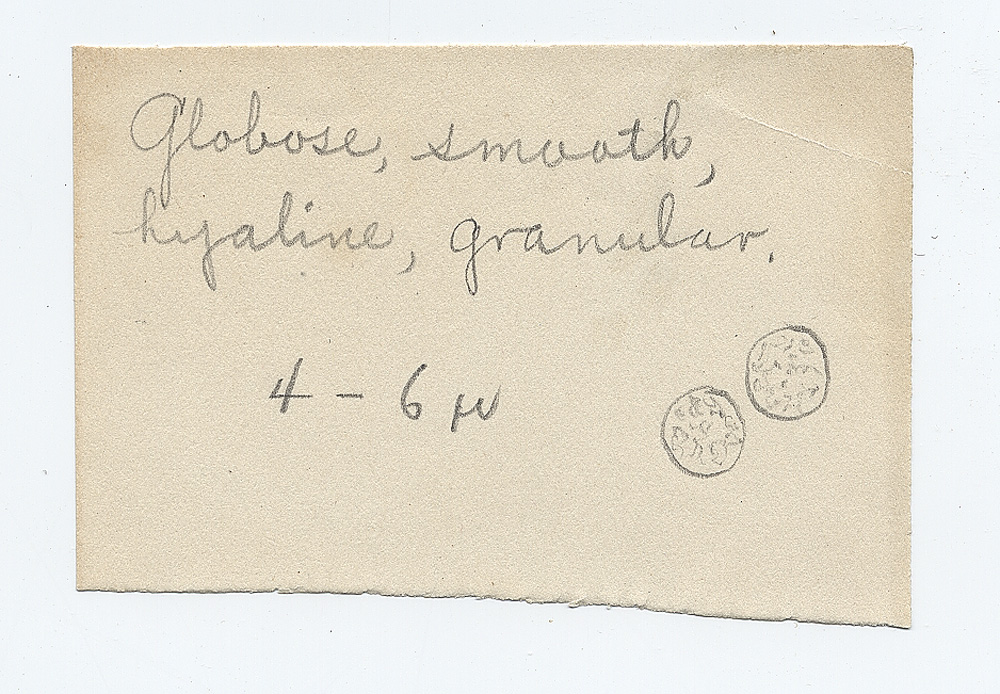 Globose, smooth,
hyaline, granular.
4 – 6 μ